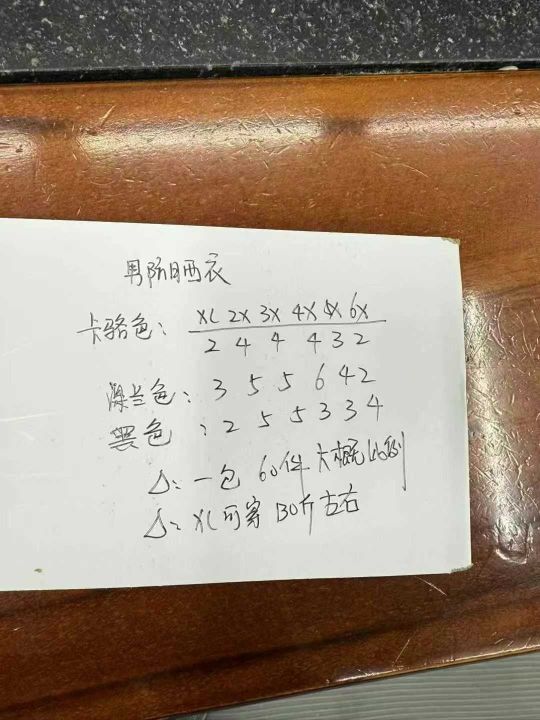 男防晒衣
卡骆色： XL 2X 3X 4X 5X 6X
2 4 4 4 3 2
深兰色： 3 5 5 6 4 2
黑色 ： 2 5 5 3 3 4
△： 一包 60件 大概比例
△： XL可穿 130斤左右